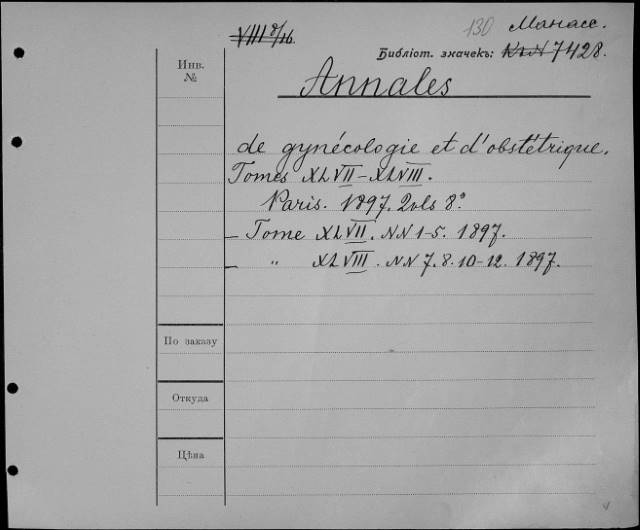 VIII 8/16
130 Манасс.
Библіот. значекъ: К.и.N 7428.
Инв.
№
Annales
de gynécologie et d'obstétrique.
Tomes XLVII-XLVIII.
Paris. 1897. 2 vols 8°
- Tome XLVII. NN 1-5. 1897.
- " XLVIII. NN 7. 8. 10-12. 1897.
По заказу
Откуда
Цѣна